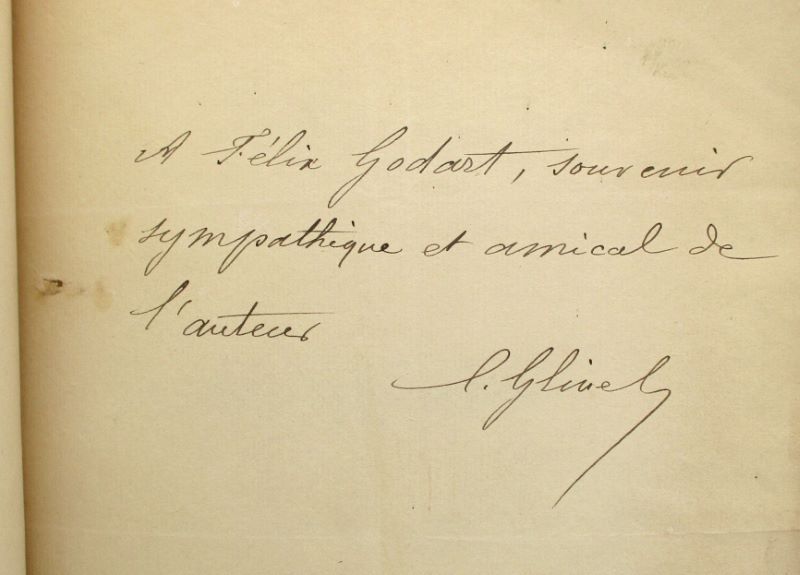 A Félix Godart, souvenir
sympathique et amical de
l'auteur
C. Glinel